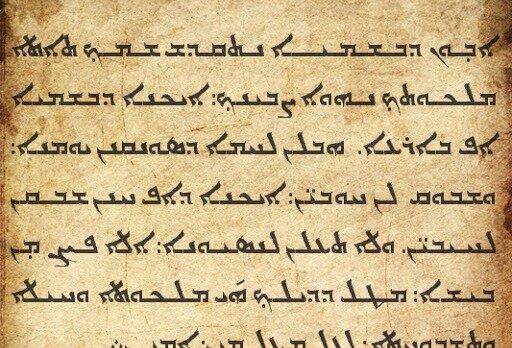 ܐܒܘܢ ܕܒܫܡܝܐ ܢܬܩܕܫ ܫܡܟ ܬܐܬܐ
ܡܠܟܘܬܟ ܢܗܘܐ ܨܒܝܢܟ: ܐܝܟܢܐ ܕܒܫܡܝܐ
ܐܦ ܒܐܪܥܐ. ܗܒܠܢ ܠܚܡܐ ܕܣܘܢܩܢܢ ܝܘܡܢܐ:
ܘܫܒܘܩ ܠܢ ܚܘܒܝ̈ܢ: ܐܝܟܢܐ ܕܐܦ ܚܢܢ ܫܒܩܢ
ܠܚܝܒܝ̈ܢ. ܘܠܐ ܬܥܠܢ ܠܢܣܝܘܢܐ: ܐܠܐ ܦܨܢ ܡܢ
ܒܝܫܐ: ܡܛܠ ܕܕܝܠܟ ܗܝ ܡܠܟܘܬܐ ܘܚܝܠܐ